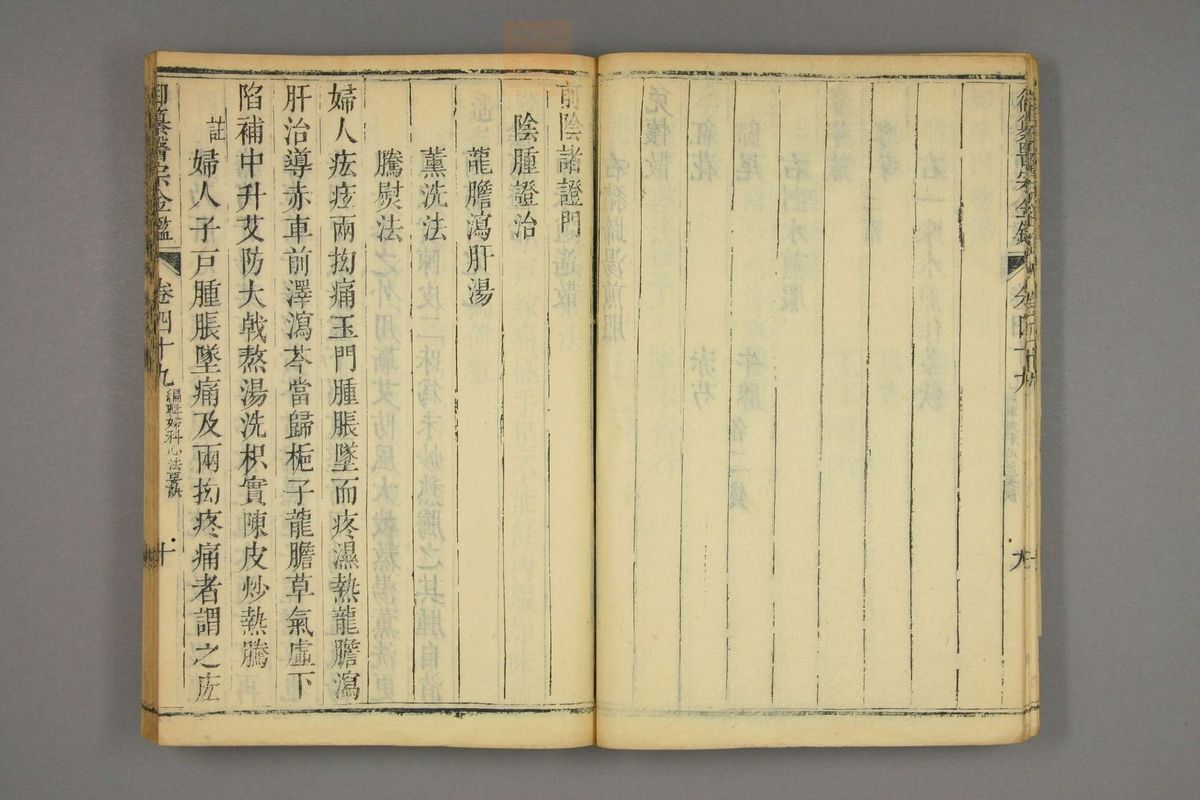 御纂醫宗金鑑 卷四十九
九
前陰諸證門
陰腫證治
龍膽瀉肝湯
薰洗法
騰熨法
婦人㽱疝兩拗痛玉門腫脹墜而疼濕熱龍膽瀉
肝治導赤車前澤瀉芩當歸梔子龍膽草氣虛下
陷補中升艾防大戟熬湯洗枳實陳皮炒熱騰
註婦人子戶腫脹墜痛及兩拗疼痛者謂之㽱
御纂醫宗金鑑 卷四十九 編輯婦科心法要訣 十